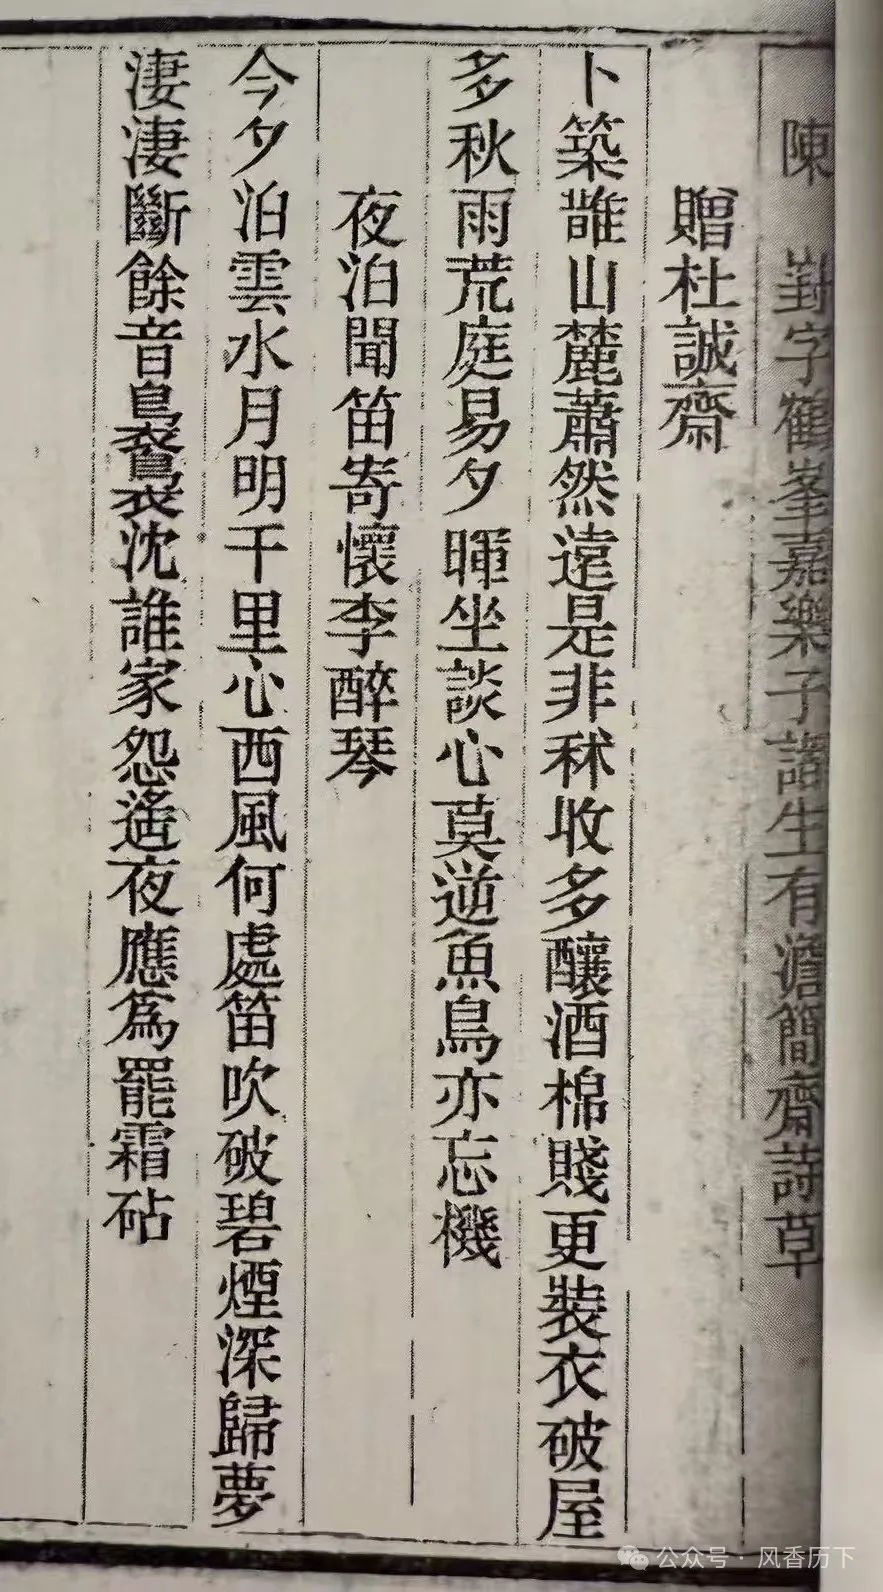 陳 字鶴峯嘉樂子諸生有澹簡齋詩草
贈杜誠齋
卜築䧿山麓蕭然遠是非秫收多釀酒棉賤更裝衣破屋
多秋雨荒庭易夕暉坐談心莫逆魚鳥亦忘機
夜泊聞笛寄懷李醉琴
今夕泊雲水月明千里心西風何處笛吹破碧煙深歸夢
淒淒斷餘音裊裊沈誰家怨遙夜應爲罷霜砧
公众号·风香历下